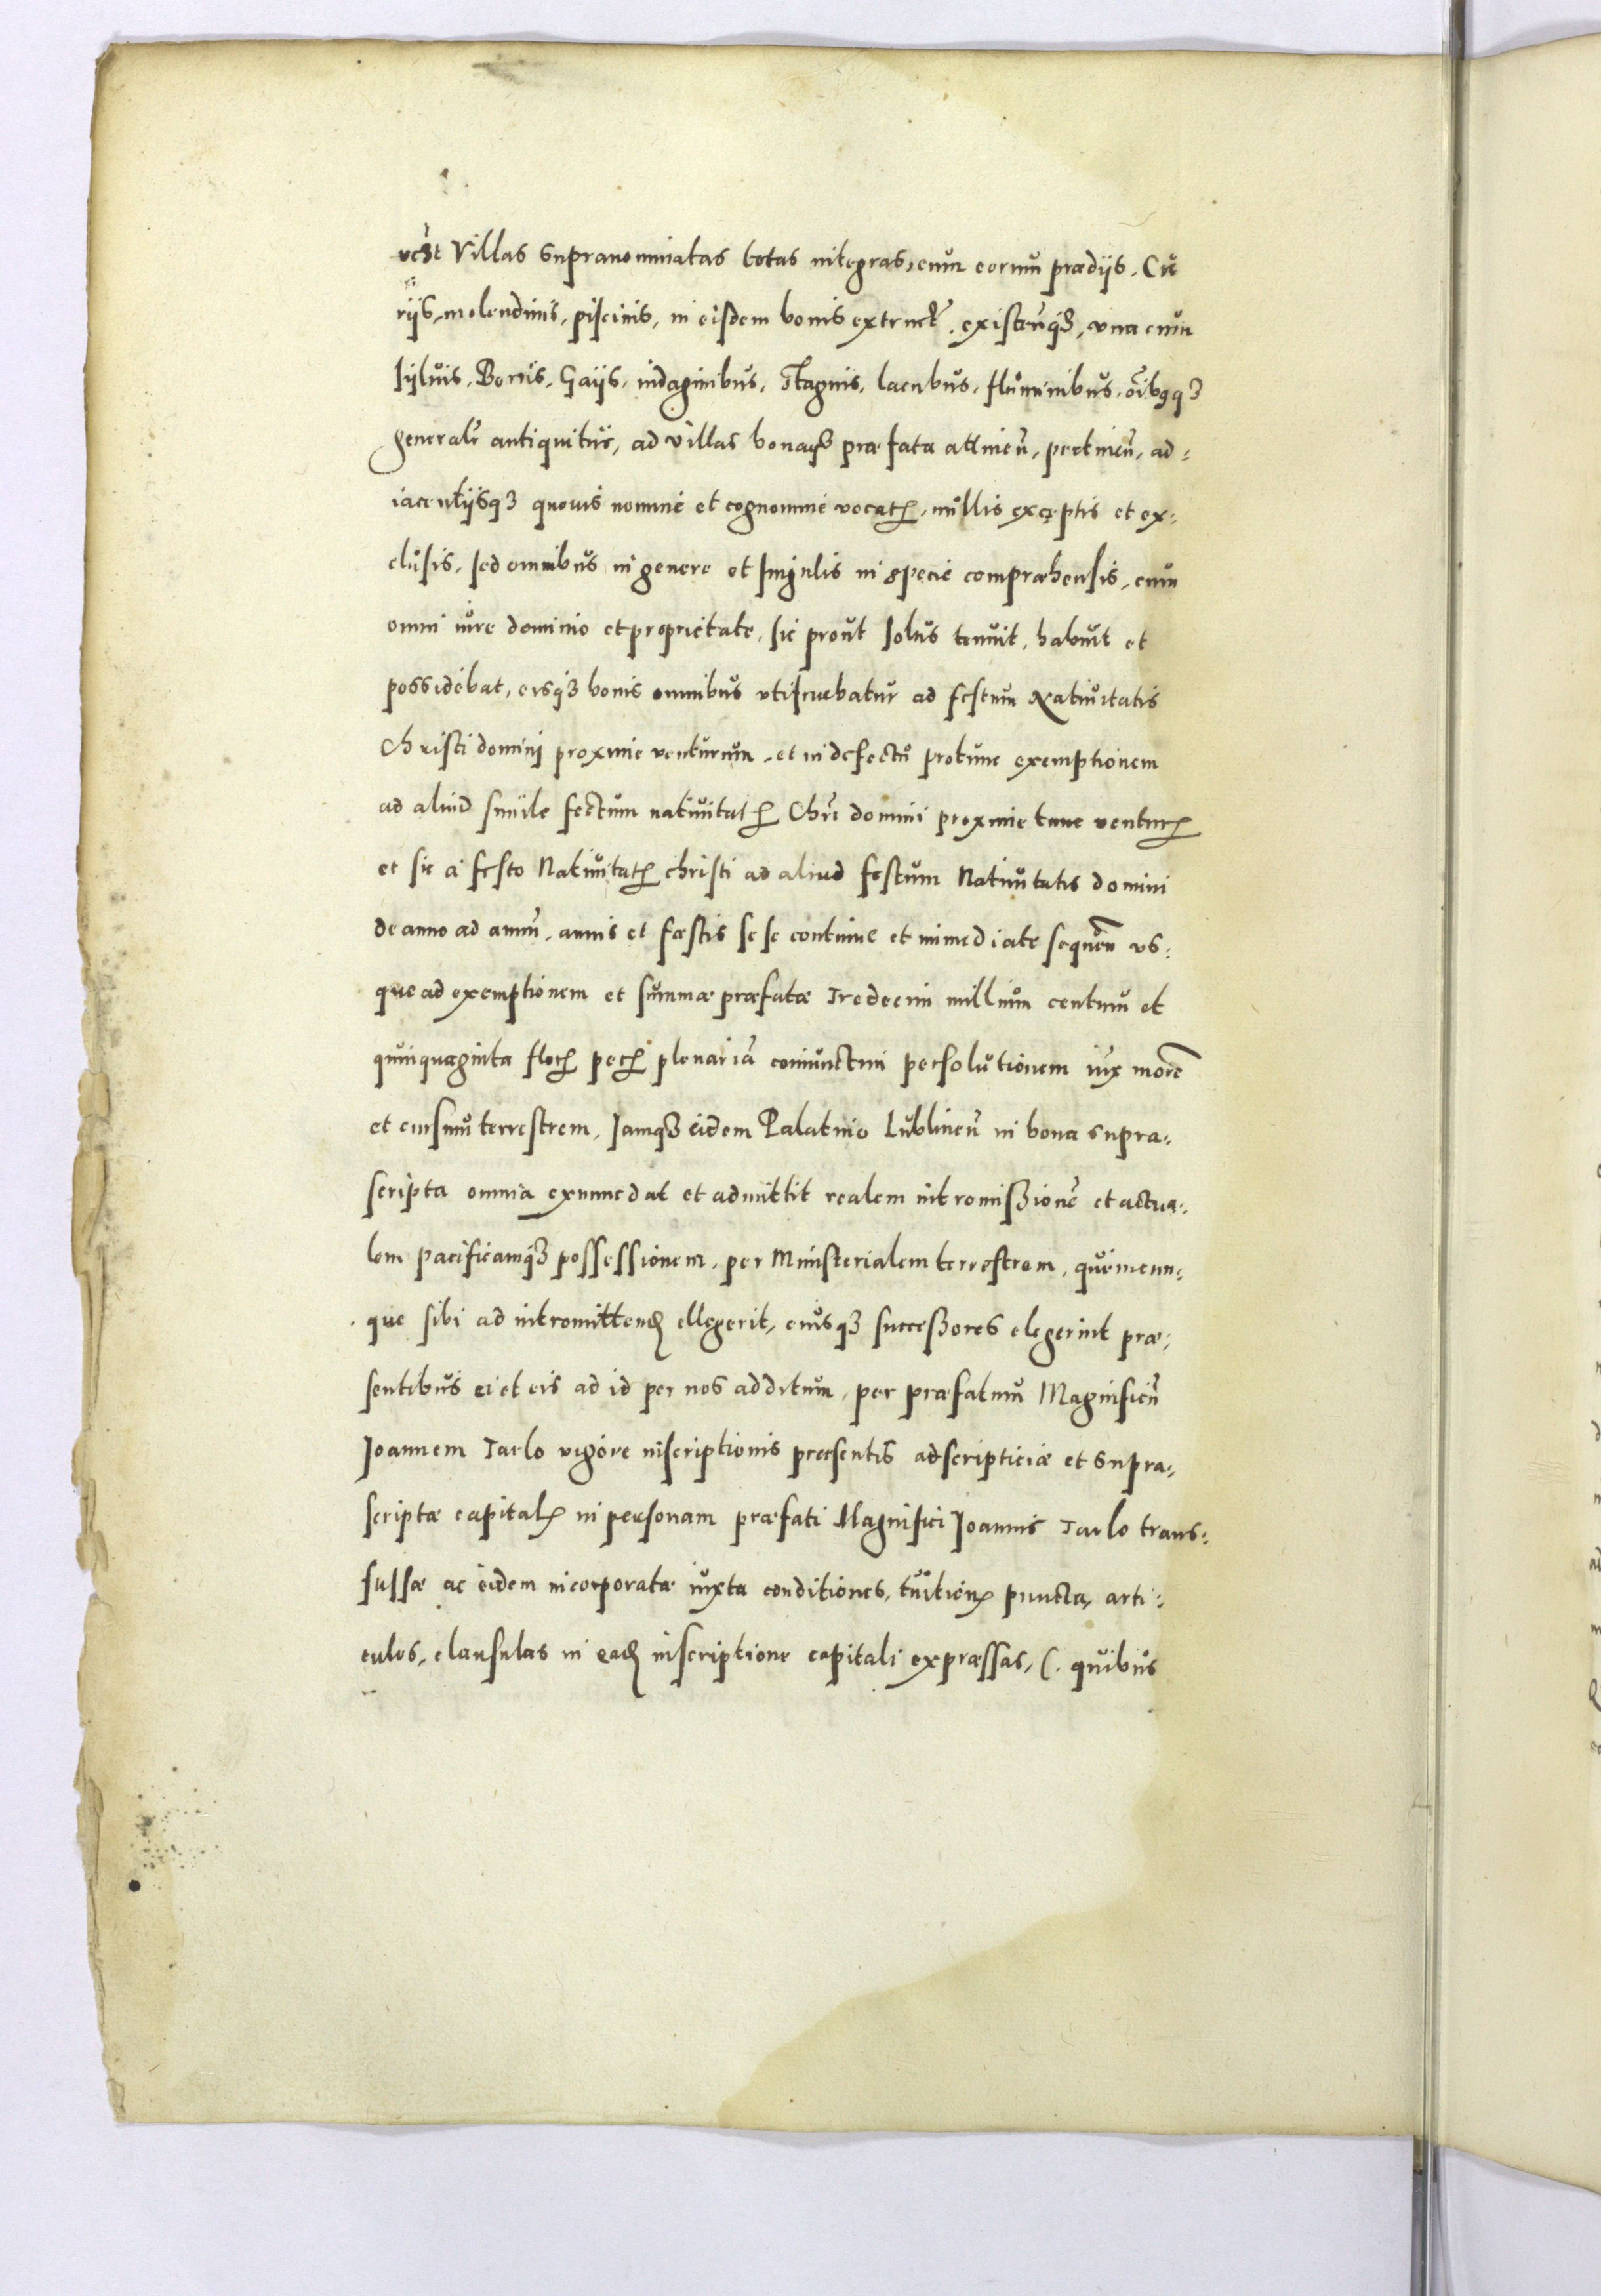 vczt Villas supranominatas totas integras, cum eorum prædijs. Cu
rijs, molendinis, piscinis, in eisdem bonis extruct. existen̄q3, vna cum
syluis, Borris, Gaijs, indaginibus, stagnis, lacubus, fluminibus, oībqq3
general̄r antiquitus, ad villas bonaq3 præfata attinen̄, pertinen̄, ad-
iacentijsq3 quouis nomine et cognomine vocat., nullis exceptis et ex-
clusis, sed omnibus in genere et singulis in specie compræhensis, cum
omni iure dominio et proprietate, sic prout solus tenuit, habuit et
possidebat, eisq3 bonis omnibus utifruebatur ad festum Natiuitatis
Christi domini proxime venturum, et in defectu protunc exemptionem
ad aliud simile festum natiuitat. Chrī domini proxime tunc ventur.
et sic a festo Natiuitat. christi ad aliud festum Natiuitatis domini
de anno ad annū, annis et fæstis se se continue et immediate sequēn us-
que ad exemptionem et summæ præfatæ Tredecim millium centum et
quinquaginta flor. pec. plenariā coniunctim persolutionem iux morē
et cursum terrestrem, Iamq3 eidem Palatino Lublinen̄ in bona supra-
scripta omnia exnunc dat et admittit realem intromissionē et actua-
lem pacificamq3 possessionem, per Ministerialem terrestrem, quemcun-
que sibi ad intromittend ellegerit, eiusq3 successores elegerint præ-
sentibus ei et eis ad id per nos additum, per præfatum Magnificū
Ioannem Tarlo vigore inscriptionis præsentis adscripticiæ et supra-
scriptæ capital. in personam præfati Magnifici Ioannis Tarlo trans-
fussæ ac eidem incorporatæ iuxta conditiones, tuition. puncta, arti-
culos, clausulas in ead inscriptione capitali expræssas, (. quibus